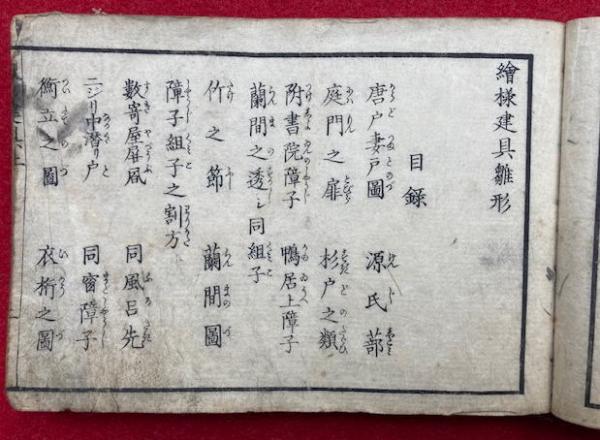 繪様建具雛形
目録
唐戸妻戸圖 源氏蔀
庭門之扉 杉戸之類
附書院障子 鴨居上障子
蘭間之透シ同組子
竹之節 蘭間圖
障子組子之割方
數寄屋屏風 同風呂先
ニジリ中潜リ戸 同窗障子
衝立之圖 衣桁之圖